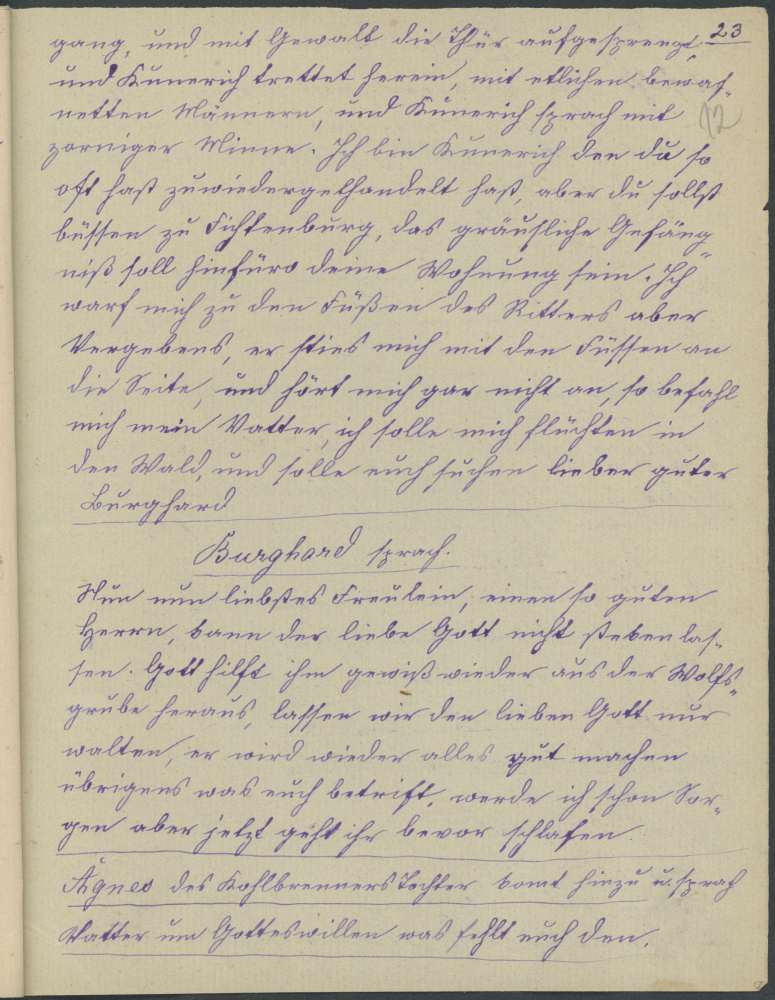 23
gang, und mit Gewalt die Thür aufgesprengt,
und Kunerich trettet herein, mit etlichen bewaf-
12
netten Männern, und Kunerich sprach mit
zorniger Minne. Ich bin Kunerich den du so
oft hast zuwiedergethandelt hast, aber du sollst
büssen zu Fichtenburg, das gräusliche Gefäng-
niß soll hinfüro deine Wohnung sein. Ich
warf mich zu den Füßen des Ritters aber
Vergebens, er sties mich mit den Füssen an
die Seite, und hört mich gar nicht an, so befahl
mich mein Vatter, ich solle mich flüchten in
den Wald, und solle euch suchen lieber guter
Burghard
Burghard sprach.
Nun nun liebstes Freulein, einen so guten
Herrn, kann der liebe Gott nicht steken las-
sen. Gott hilft ihm gewiß wieder aus der Wolfs-
grube heraus, lassen wir den lieben Gott nur
walten, er wird wieder alles gut machen
übrigens was euch betrift, werde ich schon Sor-
gen aber jetzt geht ihr bevor schlafen.
Agnes des Kohlbrenners Tochter komt hinzu u. sprach
Vatter um Gotteswillen was fehlt euch den.